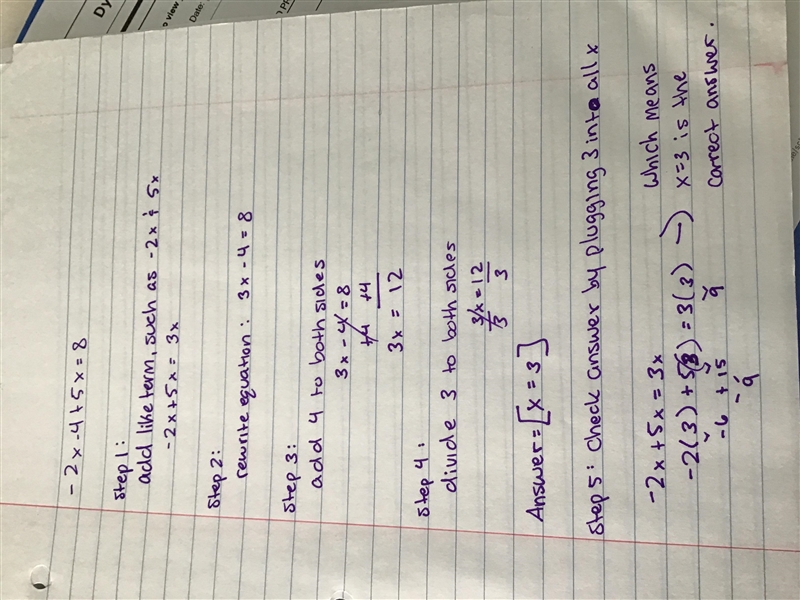 -2x-4+5x=8
Step 1:
add like term, such as -2x & 5x
-2x+5x = 3x
Step 2:
rewrite equation: 3x-4=8
Step 3:
add 4 to both sides
3x-4=8
+4 +4
3x = 12
Step 4:
divide 3 to both sides
3x = 12
3 3
Answer=[x=3]
Step 5: Check answer by plugging 3 into all x
-2x+5x=3x
-2(3)+5(3)=3(3) → which means
-6 +15 9 x=3 is the
9 correct answer.
Dy
Date: